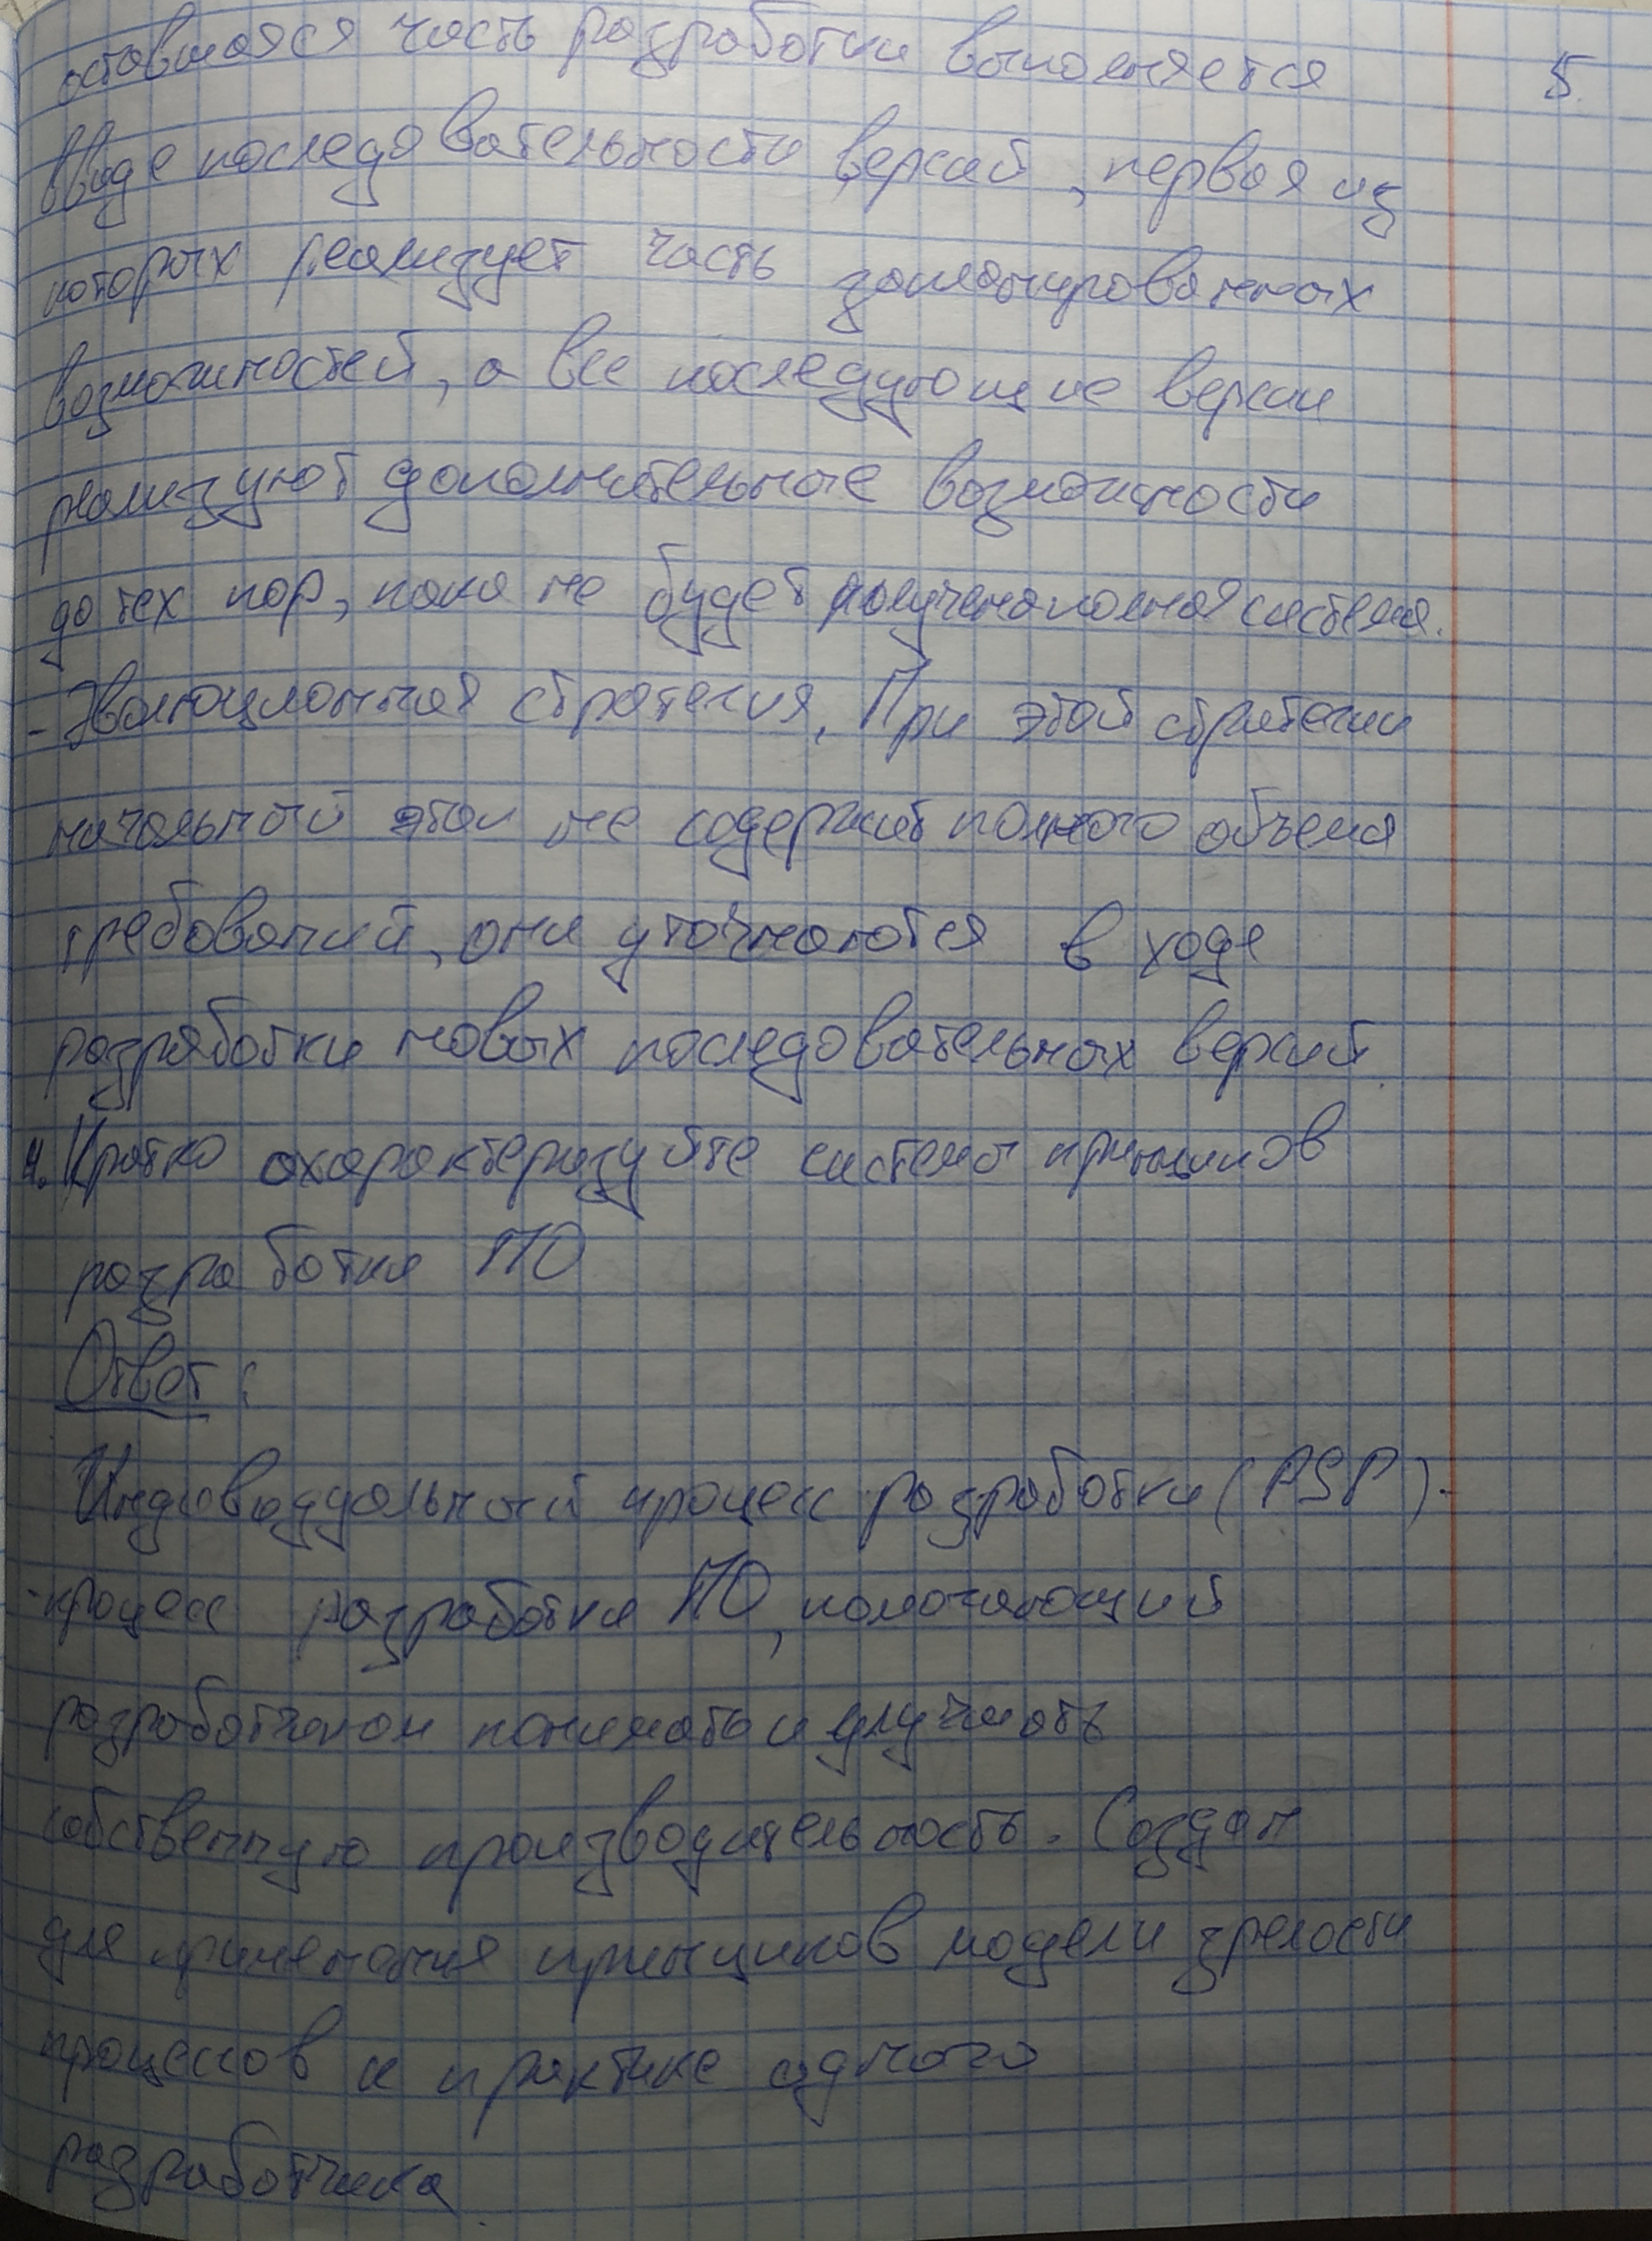 оставшаяся часть разработки выполняется
5.
ввиде последовательности версий, первая из
которых реализует часть запланированных
возможностей, а все последующие версии
реализуют дополнительные возможности
до тех пор, пока не будет получена полная система.
- Эволюционная стратегия. При этой стратегии
начальный этап не содержит полного объема
требований, они уточняются в ходе
разработки новых последовательных версий.
4. Кратко охарактеризуйте системы принципов
разработки ПО
Ответ:
Индивидуальный процесс разработки (PSP) -
- процесс разработки ПО, помогающий
разработчикам понимать и улучшать
собственную производительность. Создан
для применения принципов модели зрелости
процессов к практике одного
разработчика.